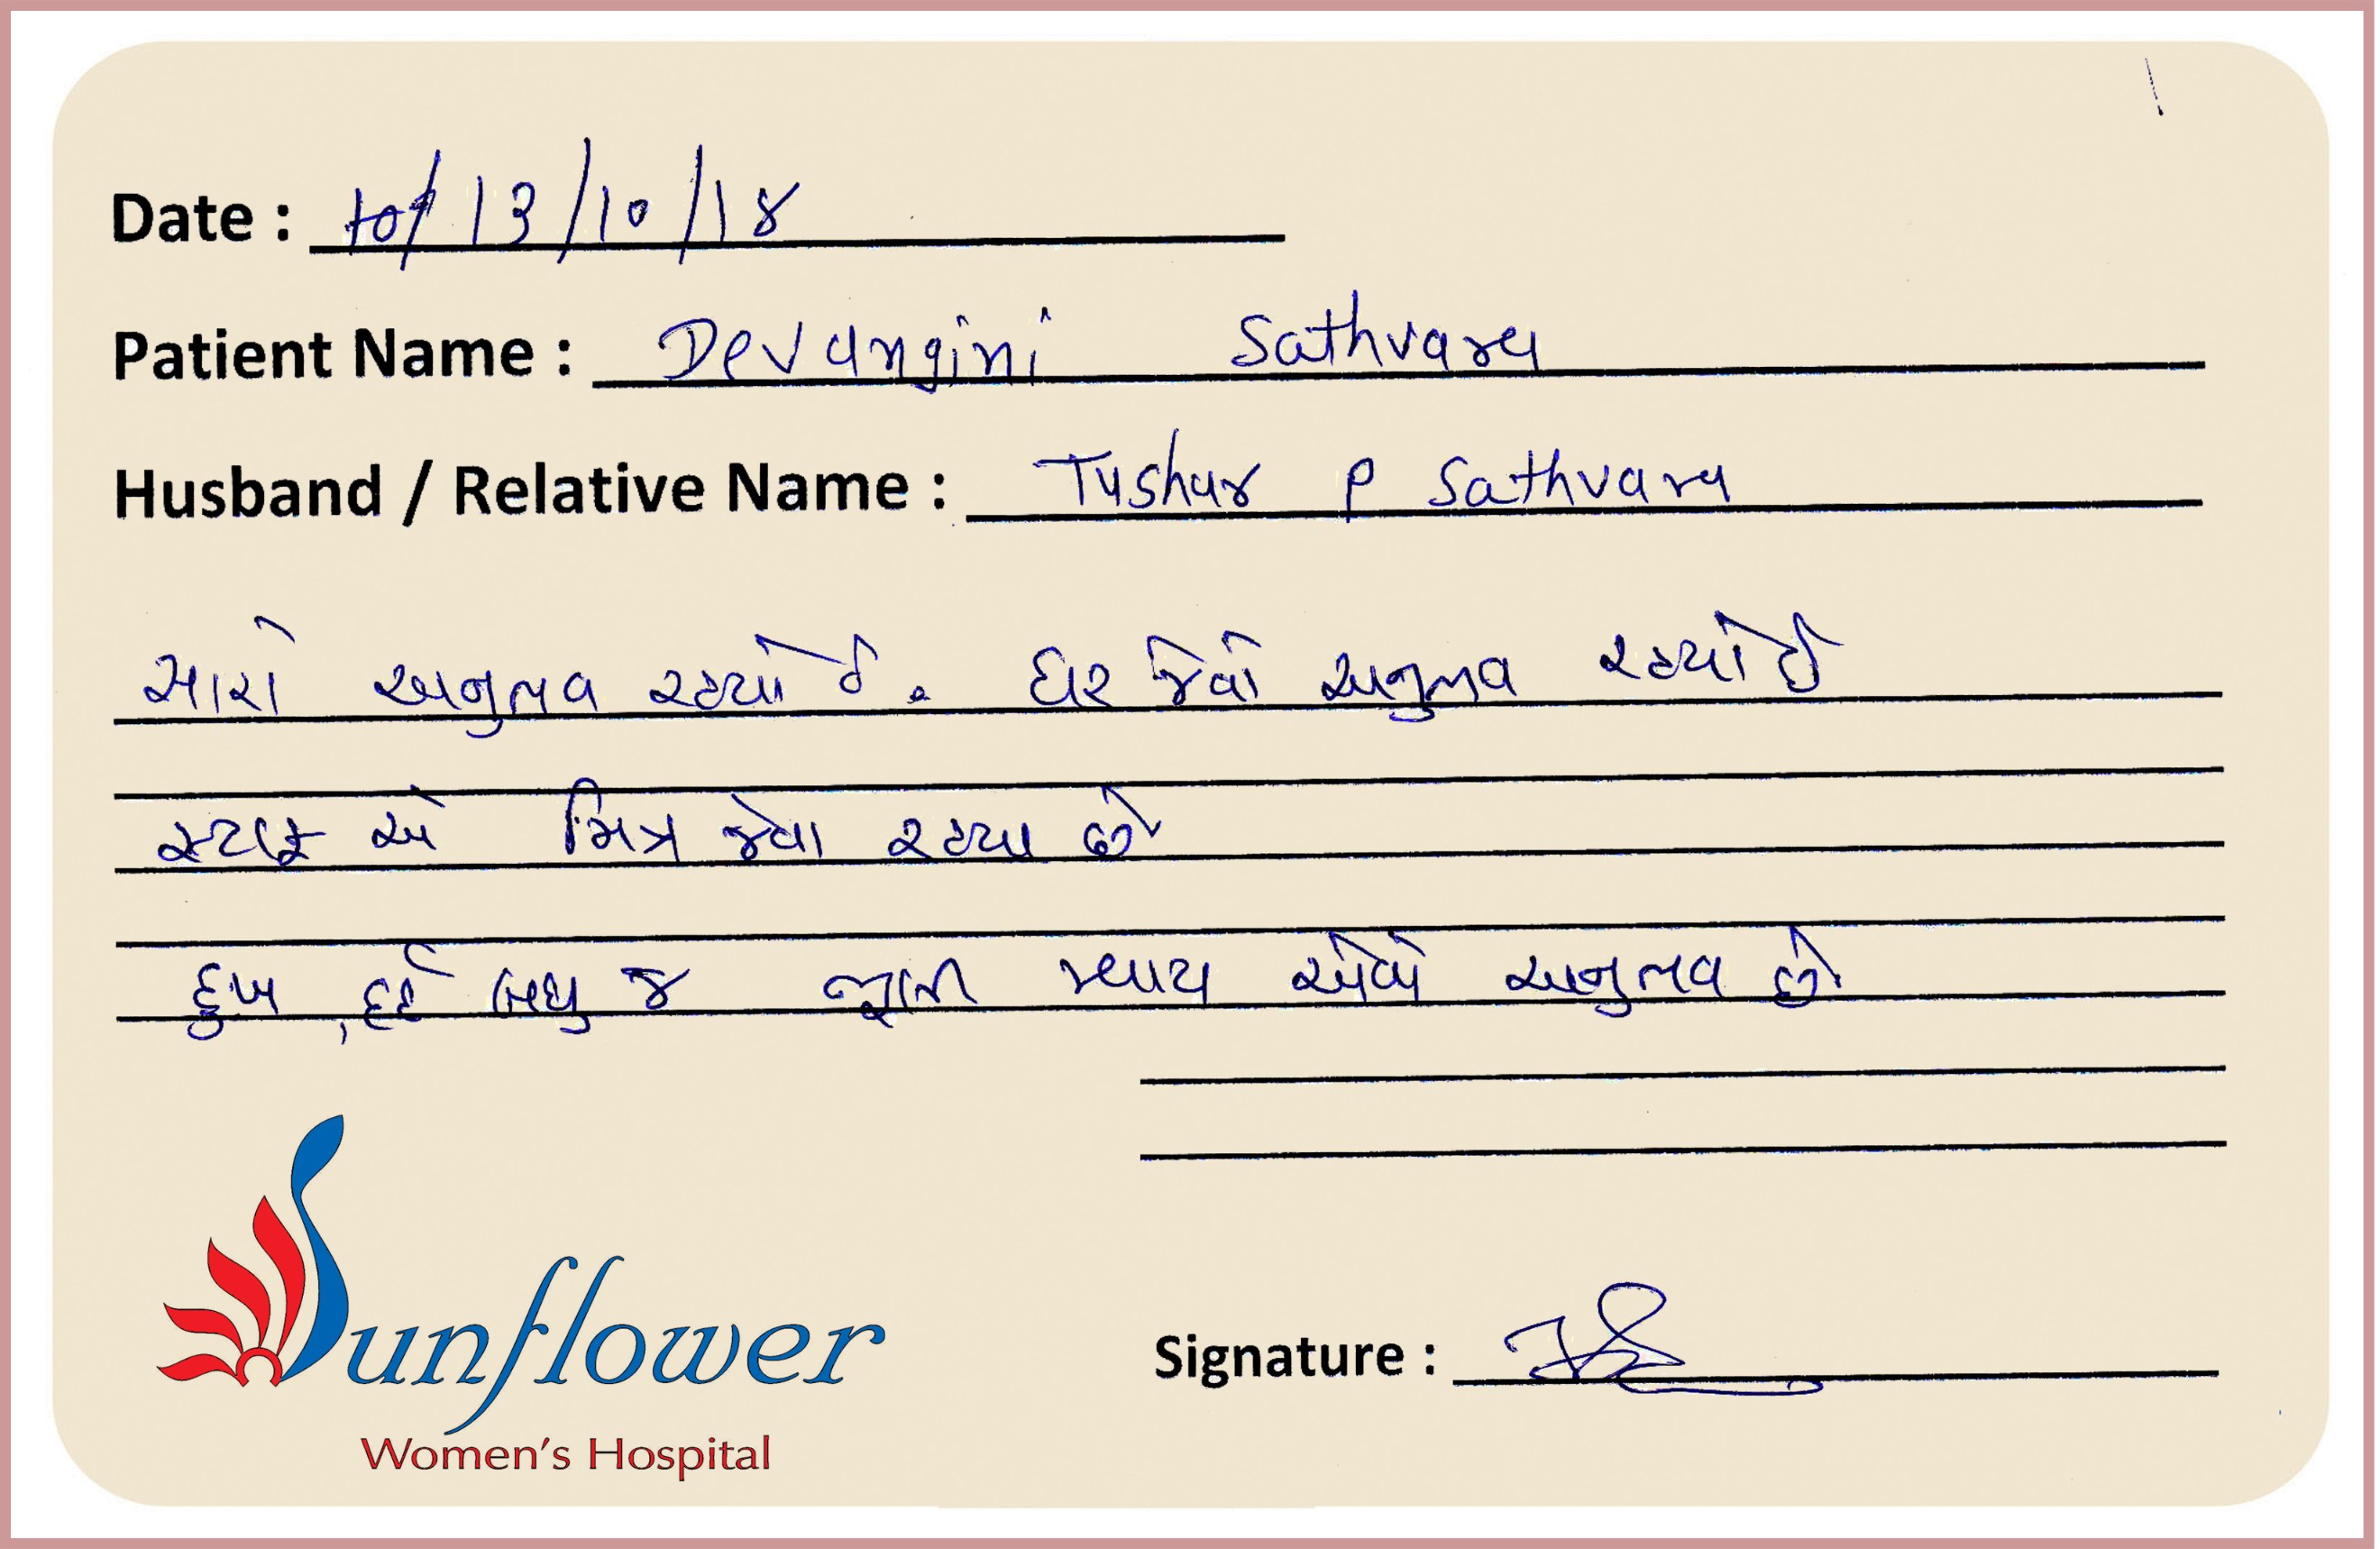 Date : 13/10/18
Patient Name : Devangini Sathvara
Husband / Relative Name : Tushar P Sathvara
મારો અનુભવ રહ્યો છે. ઘર જેવો અનુભવ રહ્યો છે
સ્ટાફ એ મિત્ર જેવા રહ્યા છે
દુખ, દર્દ બધુ જ ભુલી જવાય એવો અનુભવ છે.
Sunflower
Women's Hospital
Signature :